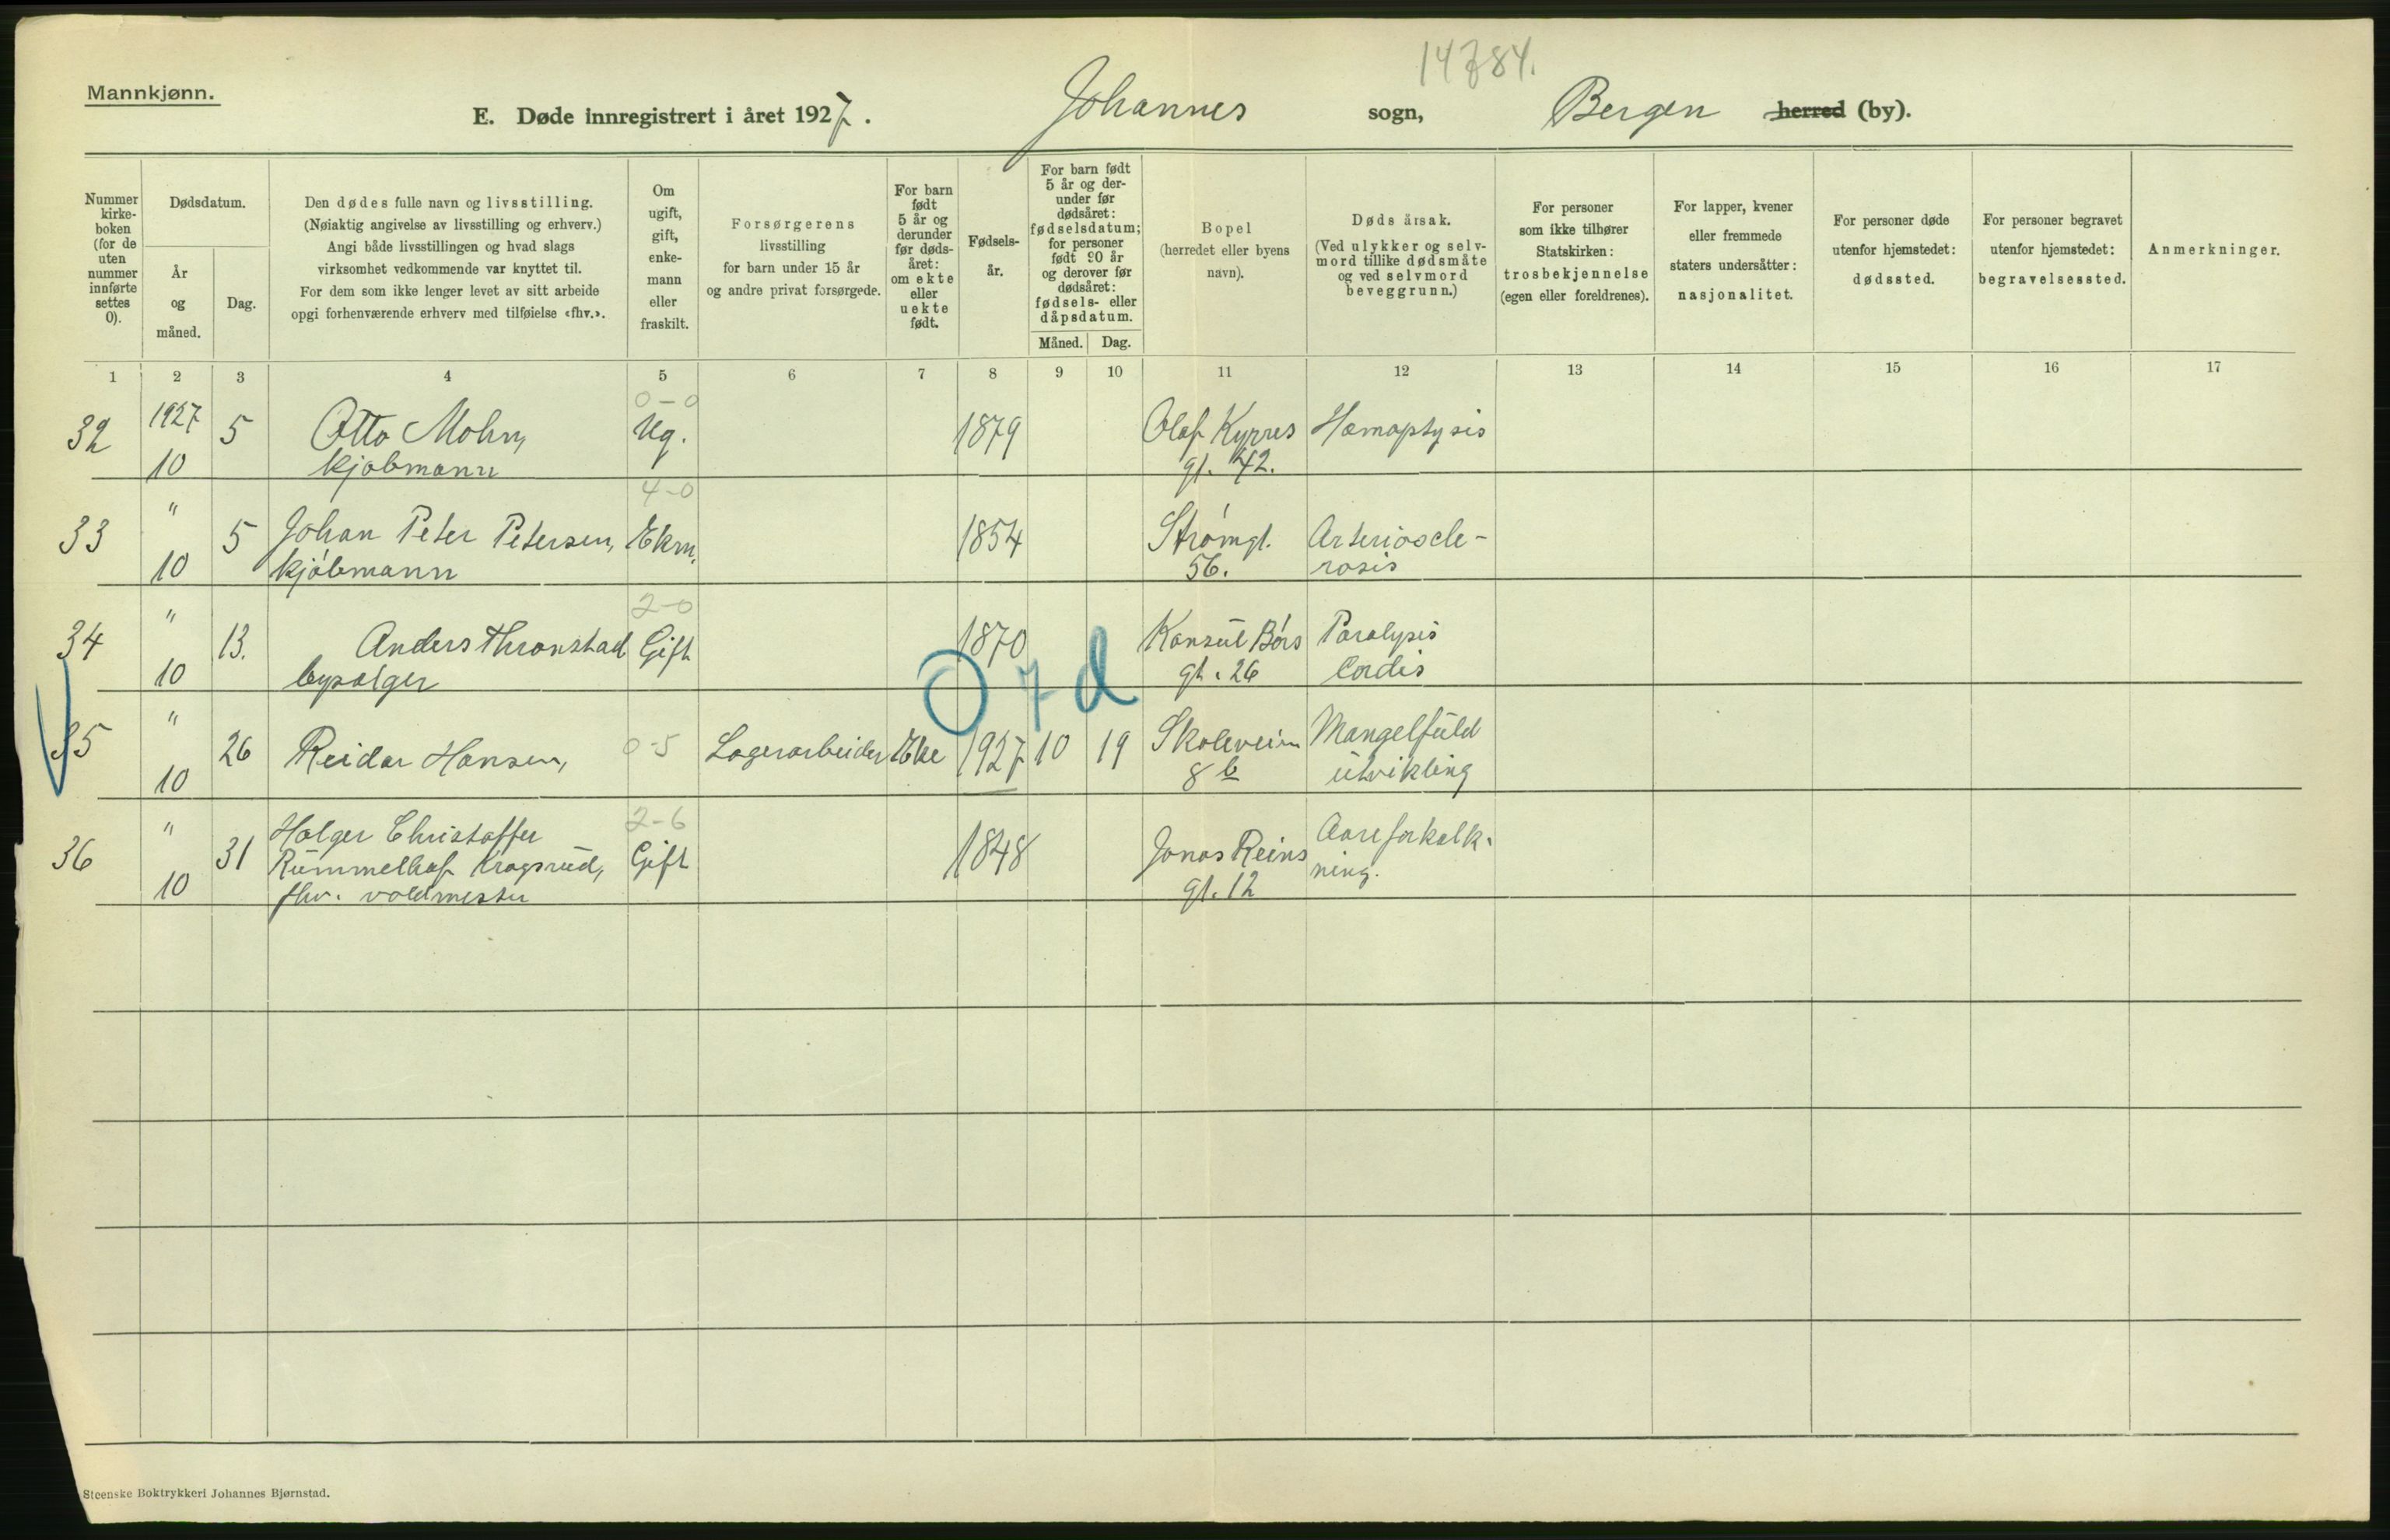 14784.
Mannkjønn.
E. Døde innregistrert i året 1927. Johannes sogn, Bergen herred (by).
Nummer
kirke-
boken
(for de
uten
nummer
innførte
settes
0).
Dødsdatum.
År
og
måned.
Dag.
Den dødes fulle navn og livsstilling.
(Nøiaktig angivelse av livsstilling og erhverv.)
Angi både livsstillingen og hvad slags
virksomhet vedkommende var knyttet til.
For dem som ikke lenger levet av sitt arbeide
opgi forhenværende erhverv med tilføielse «fhv.».
Om
ugift,
gift,
enke-
mann
eller
fraskilt.
Forsørgerens
livsstilling
for barn under 15 år
og andre privat forsørgede.
For barn
født
5 år og
derunder
før døds-
året:
om ekte
eller
uekte
født.
Fødsels-
år.
For barn født
5 år og der-
under før
dødsåret:
fødselsdatum;
for personer
født 90 år
og derover før
dødsåret:
fødsels- eller
dåpsdatum.
Måned. Dag.
Bopel
(herredet eller byens
navn).
Døds årsak.
(Ved ulykker og selv-
mord tillike dødsmåte
og ved selvmord
beveggrunn.)
For personer
som ikke tilhører
Statskirken:
trosbekjennelse
(egen eller foreldrenes).
For lapper, kvener
eller fremmede
staters undersåtter:
nasjonalitet.
For personer døde
utenfor hjemstedet:
dødssted.
For personer begravet
utenfor hjemstedet:
begravelsessted.
Anmerkninger.
1 2 3 4 5 6 7 8 9 10 11 12 13 14 15 16 17
0-0
32 1927 5 Otto Mohn, Ug. 1879 Olaf Kyrres Hæmoptysis
10 kjøbmann gt. 42.
4-0
33 " 5 Johan Peter Petersen, Ekm. 1854 Strømgt. Arterioscle-
10 kjøbmann 56. rosis
2-0
34 " 13. Anders Thronstad Gift 1870 Konsul Børs Paralysis
10 bysælger gt. 26 Cordis
0 7 d
35 " 26 Reidar Hansen, 0-5 Lagerarbeider Ekte 1927 10 19 Skoleveien Mangelfuld
10 8 b utvikling
2-6
36 " 31 Holger Christoffer Gift 1848 Jonas Reins Aareforkalk-
Rummelhof Kragsrud, gt. 12 ning.
10 fhv. voldmester
Steenske Boktrykkeri Johannes Bjørnstad.